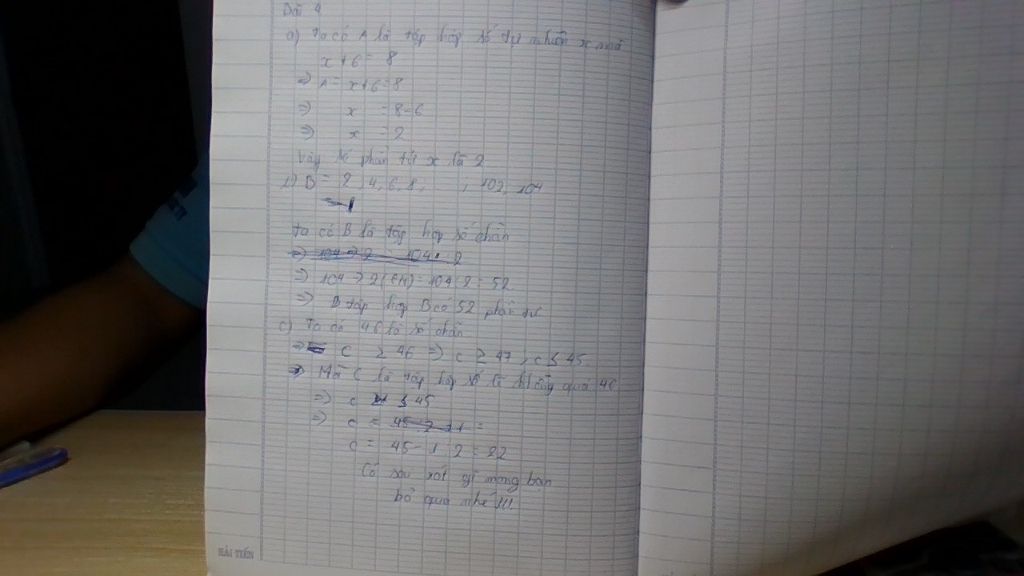 Bài 4
a) Ta có A là tập hợp số tự nhiên x mà
x + 6 = 8
=> A = x + 6 = 8
=> x = 8 - 6
=> x = 2
Vậy số phần tử x là 2
b) B = 2, 4, 6, 8, , 102, 104
Ta có B là tập hợp số chẵn
=> 104 -> 2 (CH) = 104 : 2 = 52
=> B tập hợp B có 52 phần tử
c) Ta có 46 là số chẵn
=> C ≥ 46 => c ≥ 47, c ≤ 45
=> Mà C là tập hợp số lẻ không quá 46
=> c ≤ 45
=> c =
c = 45 - 1 : 2 = 22
Có sai xót gì mong bạn
bỏ qua nhé !!!
HẢI TIẾN